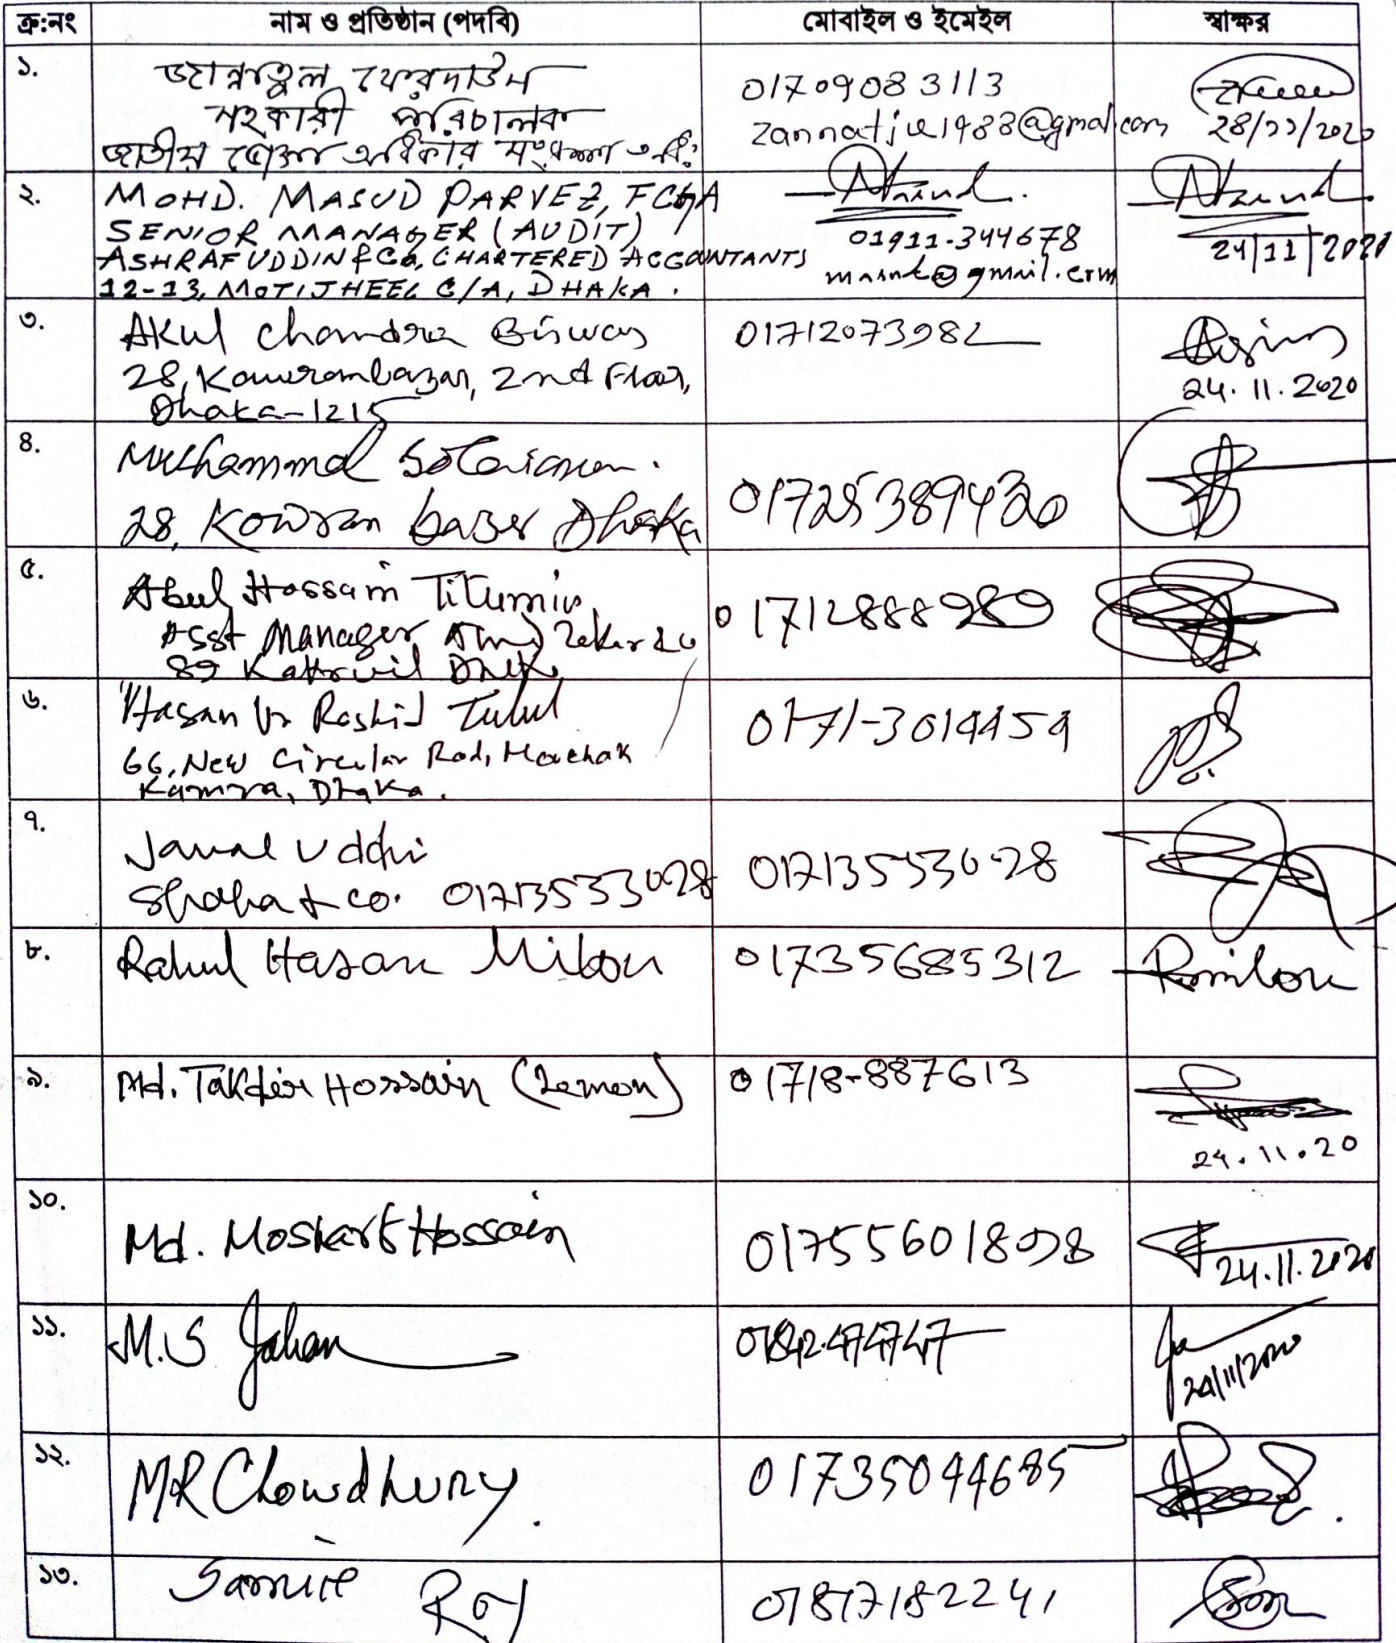 ক্র:নং নাম ও প্রতিষ্ঠান (পদবি) মোবাইল ও ইমেইল স্বাক্ষর
১.
জান্নাতুল ফেরদাউস
সহকারী পরিচালক
জাতীয় ভোক্তা অধিকার সংরক্ষণ
01709083113
28/11/2020
২.
MOHD. MASUD PARVEZ, FCGA
SENIOR MANAGER (AUDIT)
ASHRAF UDDIN & CO, CHARTERED ACCOUNTANTS
12-13, MOTIJHEEL C/A, DHAKA.
01911-344678
24/11/2020
৩.
Akul Chandra Biswas
28, Kawranbazar, 2nd Floor,
Dhaka-1215
01712073982
24.11.2020
৪.
Muhammad Solaiman.
28, Kowran bazer Dhaka
01725389430
৫.
Abul Hossain Titumir,
Asst Manager Zaker & Co
89 Kakrail Dhaka
01712888989
৬.
Hasan Ur Rashid Tutul
66, New Circular Rod, Mouchak
Dhaka.
0171-3014454
৭.
Jamal Uddin
Shaha & co. 01713533028
01713533028
৮.
Rahul Hasan Milon
01735685312
Rmilon
৯.
Md. Takdir Hossain (Lemon)
01718-887613
24.11.20
১০.
Md. Mosharf Hossain
01755601898
24.11.2020
১১.
M.S Jahan
24/11/2020
১২.
MR Chowdhury.
01735044685
১৩.
Roy
01817182241